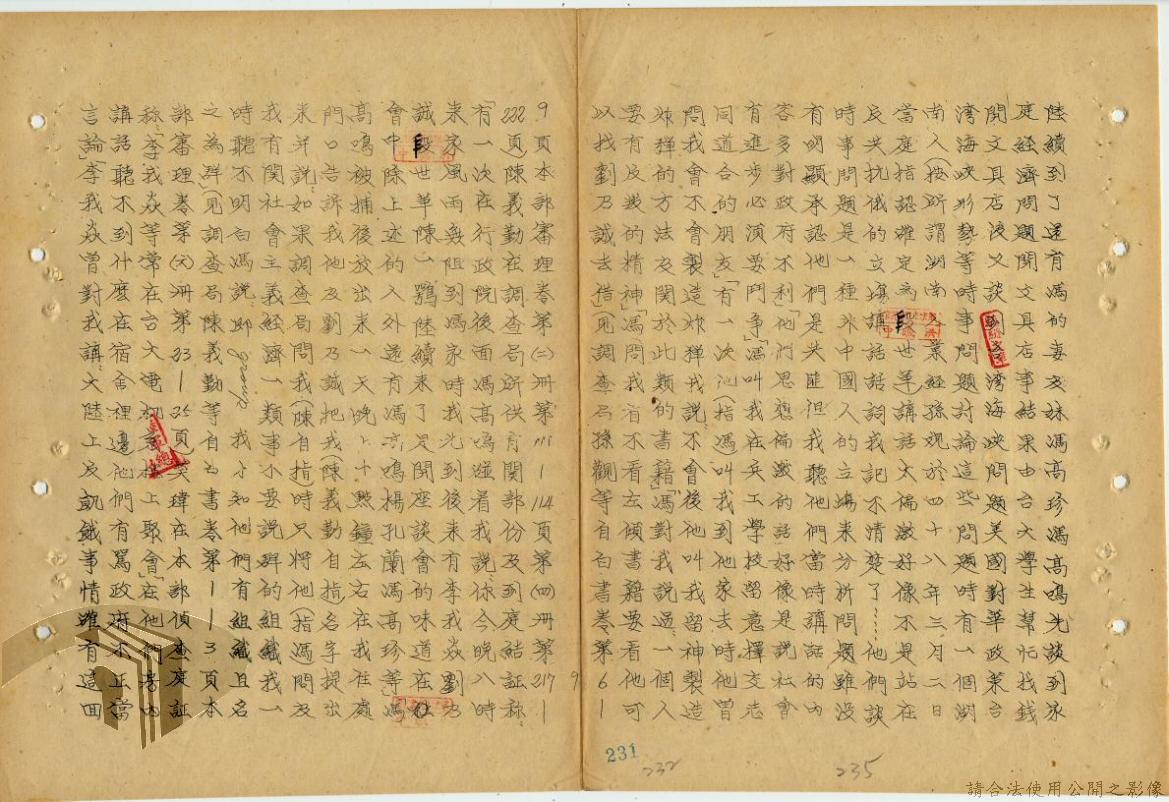 陸續到了還有馮的妻友妹馮高珍馮高鳴先談到家
庭經濟問題開文具店事結果由台大學生幫忙找錢
開文具店後又談台灣海峽問題美國對華政策台
灣海峽形勢等時事問題討論這些問題時有一個湖
南人(按所謂湖南業經孫觀於四十八年三月二日
當庭指認確定為段世革)講話太偏激好像不是站在
反共抗俄的立場講話話詞我記不清楚了……他們談
時事問題是一種外中國人的立場來分析問題雖沒
有明顯承認他們是共匪但我聽他們當時講話的內
容多對政府不利「他們思想偏激的話好像是說社會
有進步必須要鬥爭」「馮叫我在兵工學校留意擇交志
同道合的朋友」「有一次他(指馮)叫我到他家去時他曾
問我會不會製造炸彈我說不會後他叫我留神製造
炸彈的方法及關於此類的書籍」「馮對我說過一個人
要有反叛的精神」「馮問我看不看左傾書籍要看他可
以找劉乃誠去借(見調查局孫觀等自白書卷第61
9頁本部審理卷第(二)冊第111—114頁第(四)冊第217—
222頁)陳義勤在調查局所供有關部份及到庭結証称:
「有一次在行政院後面馮高鳴碰着我說:你今晚八時
來家風雨無阻到馮家時我先到後來有李我焱劉乃
誠段世革陳一鶚陸續來了是開座談會的味道在
會中除上述的人外還有馮高鳴楊孔蘭馮高珍等」「馮
高鳴被捕後放出來一天晚上十點鐘左右在我住處
門口告訴我他及劉乃誠把我(陳義勤自指)名字提出
來并說:如果調查局問我(陳自指)時只將他(指馮)問及
我有関社會主義經濟一類事不要說群的組織我一
時聽不明白馮說即group我才知他們有組織且名
之為群」(見調查局陳義勤等自白書卷第1—13頁本
部審理卷第(六)冊第23—25頁)英瑋在本部偵查庭証
称:「李我焱等常在台大電機系樓上聚會」「在他們房內
講話聽不到什麼在宿舍裡邊他們有罵政府不正當
言論」「李我焱曾對我講:大陸上反飢餓事情確有這回
231
232
235
請合法使用公開之影像